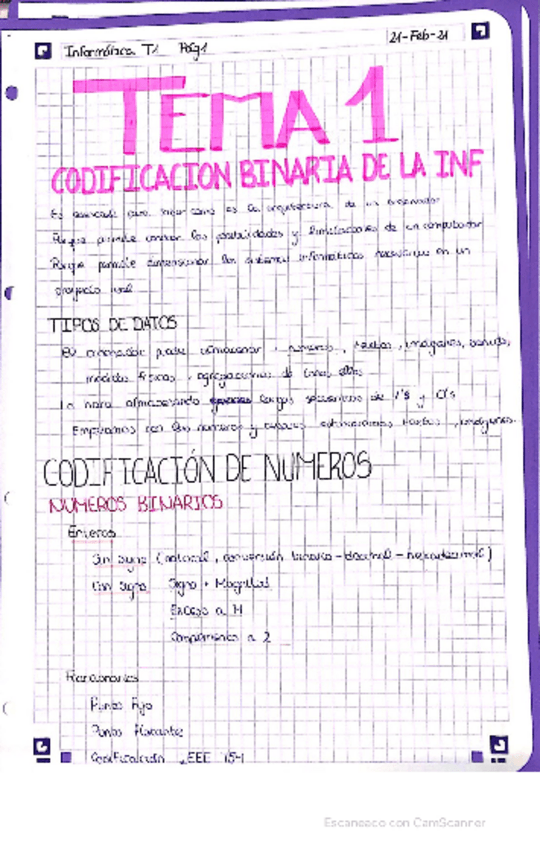 Informática T1 Pág1
21-Feb-21
TEMA 1
CODIFICACION BINARIA DE LA INF
Es para como es la arquitectura de un ordenador
Porque permite conocer las posibilidades y limitaciones de un computador
Porque permite dimensionar los sistemas informáticos necesarios en un
proyecto
TIPOS DE DATOS
El ordenador puede almacenar: números, textos, imágenes, sonido,
medidas físicas, agregaciones de
Lo hará almacenando largas secuencias de 1's y 0's
Empezamos con los números y textos, imágenes
CODIFICACIÓN DE NUMEROS
NUMEROS BINARIOS
Enteros
Sin signo (natural, conversión binario-decimal-hexadecimal)
Con signo Signo + Magnitud
Exceso a M
Complemento a 2
Fraccionarios
Punto Fijo
Punto Flotante
Codificación IEEE 754
Escaneado con CamScanner